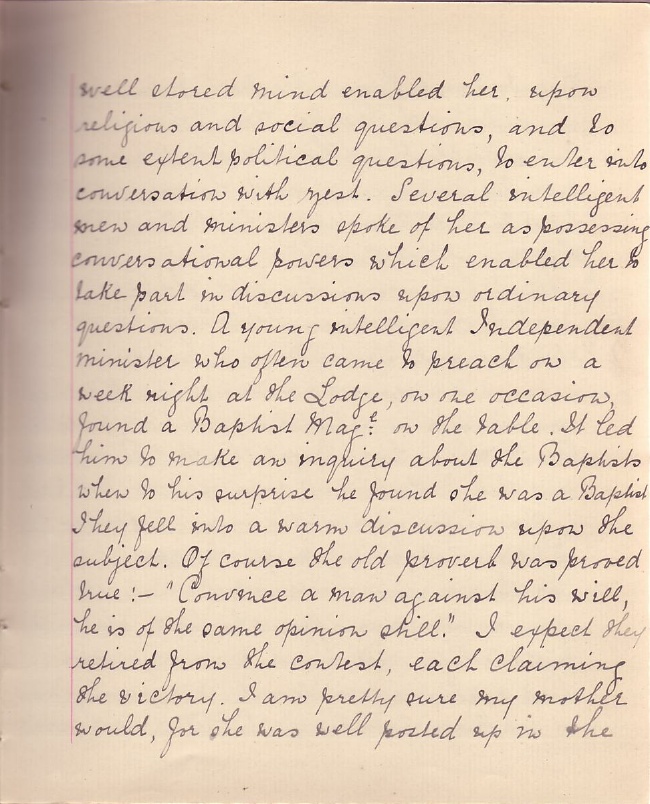 well stored mind enabled her, upon
religious and social questions, and to
some extent political questions, to enter into
conversation with zest. Several intelligent
men and ministers spoke of her as possessing
conversational powers which enabled her to
take part in discussions upon ordinary
questions. A young intelligent Independent
minister who often came to preach on a
week night at the Lodge, on one occasion,
found a Baptist Mag:e on the table. It led
him to make an inquiry about the Baptists
when to his surprise he found she was a Baptist
They fell into a warm discussion upon the
subject. Of course the old proverb was proved
true :— "Convince a man against his will,
he is of the same opinion still." I expect they
retired from the contest, each claiming
the victory. I am pretty sure my mother
would, for she was well posted up in the